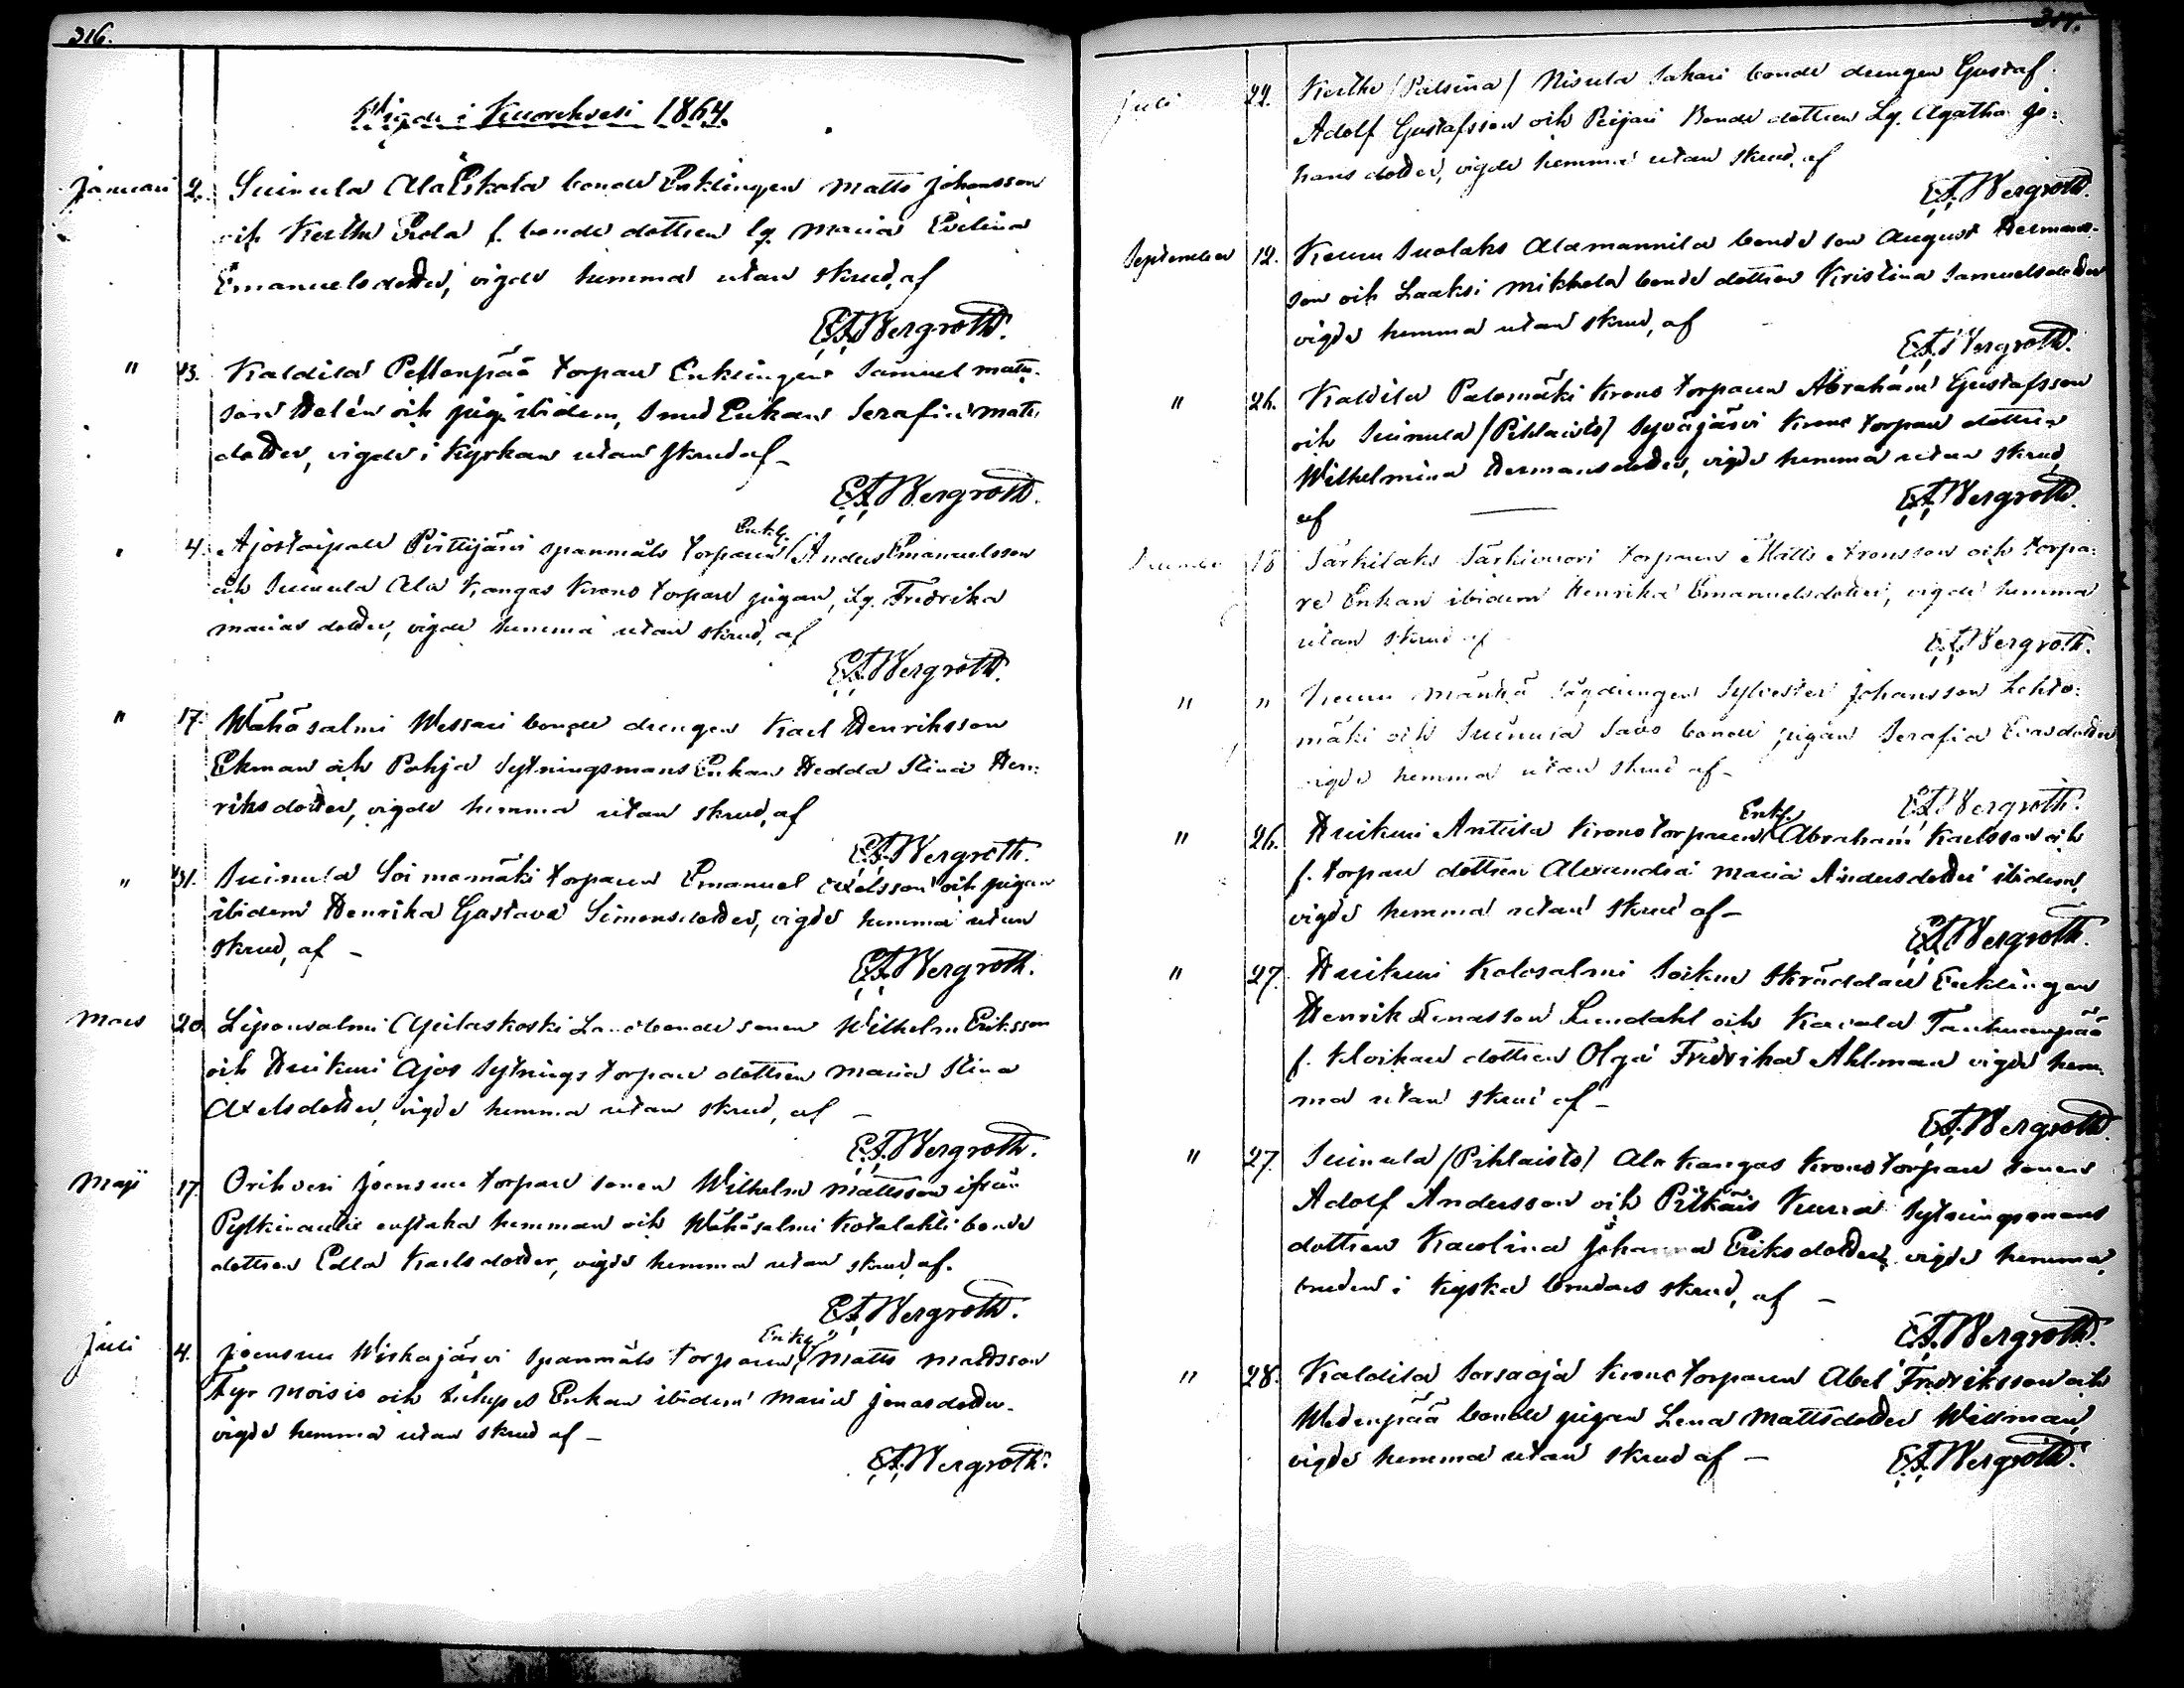 316.
Vigde i Kuorehvesi 1864.
Januari 2. Suinula Ala Eskola bonde Enklingen Matts Johansson
och Kertte Prola f. bonde dottren Lg. Maria Evelina
Emanuelsdotter, vigde hemma utan skrud, af
E.A. Bergroth.
" 3. Kaldila Pellonpää torpare Enklingen Samuel Matts-
son Helén och pig. ibidem, smed Enkan Serafia Matts
dotter, vigde i Kyrkan utan skrud af –
E.A. Bergroth.
" 4. Ajostaipale Pirttijärvi spanmåls torparen Enkl. Anders Emanuelsson
och Suinula Ala Kangas Krono torpare pigan, Lg. Fredrika
Mariasdotter, vigde hemma utan skrud, af
E.A. Bergroth.
" 17. Wähäsalmi Wessari bonde drengen Karl Henriksson
Ekman och Pohja Sytningsmans Enkan Hedda Stina Hen-
riksdotter, vigde hemma utan skrud, af
E.A. Bergroth.
" 31. Suinula Soimamäki torparen Emanuel Axelsson och pigan
ibidem Henrika Gustava Simonsdotter, vigde hemma utan
skrud, af –
E.A. Bergroth.
Mars 20. Liponsalmi Apilaskoski Landbonde sonen Wilhelm Eriksson
och Huikuri Ajos Sytnings torpare dottren Maria Stina
Axelsdotter, vigde hemma utan skrud, af –
E.A. Bergroth.
Maji 17. Orihvesi Joensuu torpare sonen Wilhelm Mattsson ifrån
enstaka hemman och Wähäsalmi Kotalahti bonde
dottren Edla Karlsdotter, vigde hemma utan skrud, af.
E.A. Bergroth.
Juli 4. Joensuu Wiskajärvi Spanmåls torparen Enkl. Matts Mattsson
Tyrmoisio och Enkan ibidem Maria Jonasdotter.
vigde hemma utan skrud af –
E.A. Bergroth.
317.
Juli 22. Kertte (Palsina) Nisula Sakari bonde drengen Gustaf
Adolf Gustafsson och Peijari Bonde dottren Lg. Agatha Jo-
hansdotter, vigde hemma utan skrud, af
E.A. Bergroth.
September 12. Keuru Suolaks Alamannila bonde son August Herman-
son och Laaksi Mikkola bonde dottren Kristina Samuelsdotter
vigde hemma utan skrud, af
E.A. Bergroth.
" 26. Kaldila Palomäki Krono torparen Abraham Gustafsson
och Suinula (Pihlaisto) Syväjärvi Krono torpare dottren
Wilhelmina Hermansdotter, vigde hemma utan skrud,
af
E.A. Bergroth.
18 Särkilaks Särkivuori torparen Matts Aronsson och torpa-
re Enkan ibidem Henrika Emanuelsdotter, vigde hemma
utan skrud af
E.A. Bergroth.
" " Keuru Mänttä Sågdrengen Sylvester Johansson Lehto-
mäki och Suinula Savo bonde pigan Serafia Evasdotter
vigde hemma utan skrud af –
E.A. Bergroth.
" 26. Huikuri Anttila Kronotorparen Enkl. Abraham Karlsson och
f. torpare dottren Alexandra Maria Andersdotter ibidem,
vigde hemma utan skrud af –
E.A. Bergroth.
" 27. Huikuri Kolosalmi Soikun Skräddare Enklingen
Henrik Enasson Lundahl och Kavala Tauhuanpää
f. Klockare dottren Olga Fredrika Ahlman vigde hem-
ma utan skrud af –
E.A. Bergroth.
" 27. Suinula (Pihlaisto) Ala Kangas Krono torpare sonen
Adolf Andersson och Pitkäis Sytningsmans
dottren Karolina Johanna Eriksdotter, vigde hemma,
bruden i Kyrko brudens skrud, af –
E.A. Bergroth.
" 28. Kaldila Sorsaoja Krono torparen Abel Fredriksson och
Wedenpää bonde pigan Lena Mattsdotter Widman,
vigde hemma utan skrud af –
E.A. Bergroth.